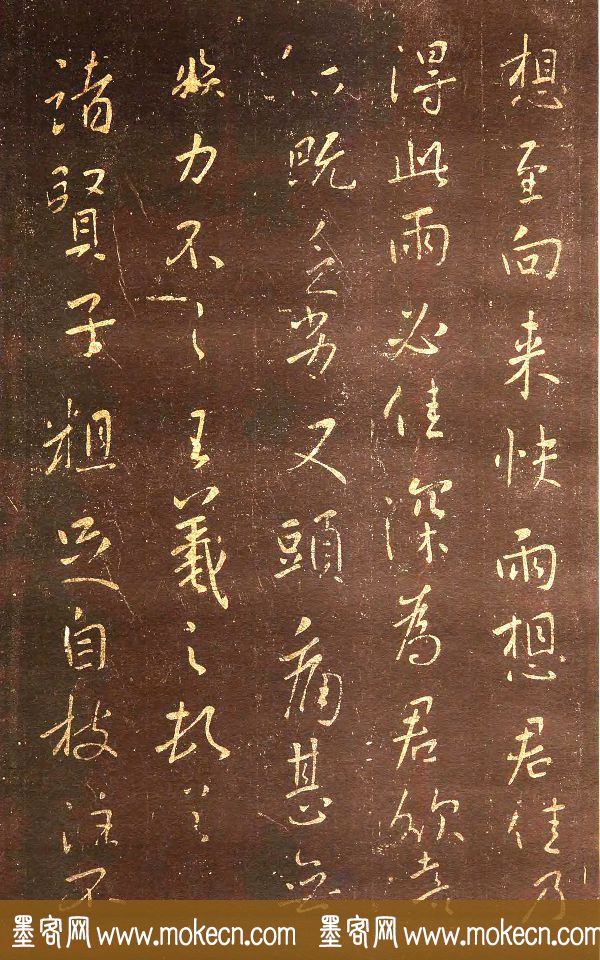 想至向来快雨想君佳乃
得此雨必佳深為君欣喜
既乏劣又頭痛甚無
力不王羲之頓首
諸賢子粗足自枝不
墨客网 www.mokecn.com 墨客网 www.mokecn.com